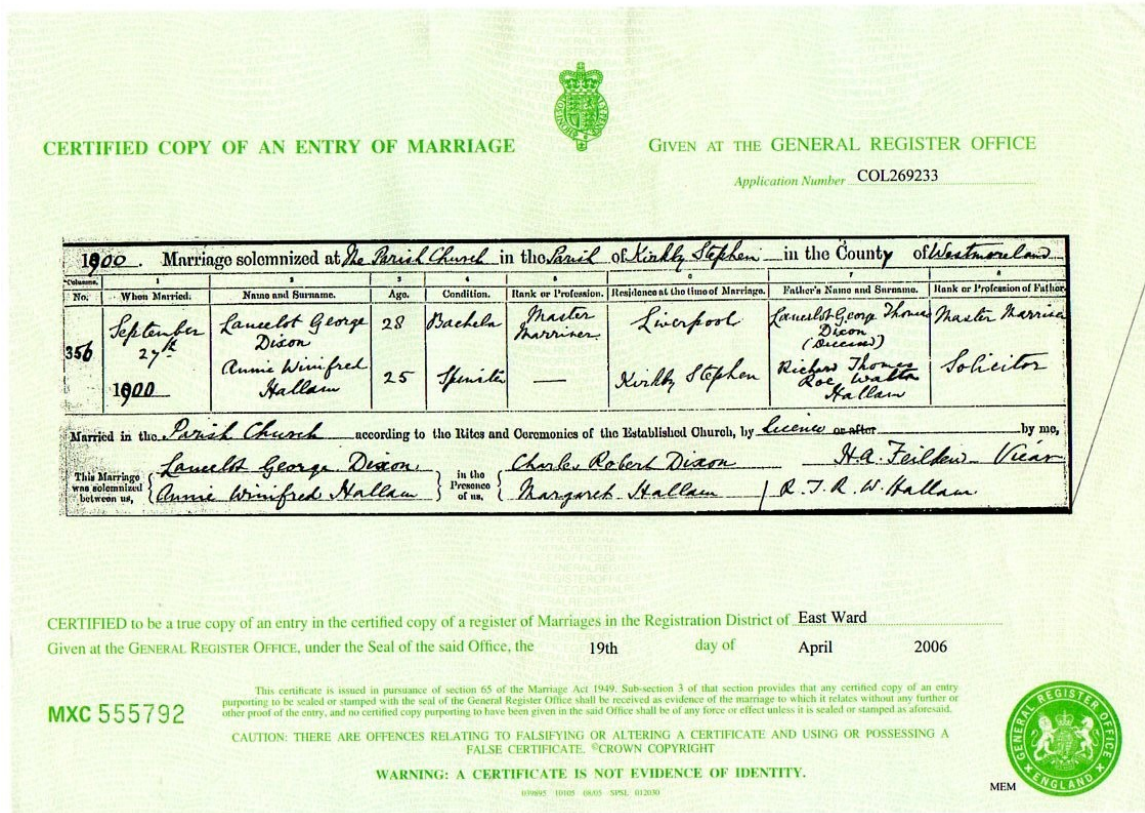 CERTIFIED COPY OF AN ENTRY OF MARRIAGE
GIVEN AT THE GENERAL REGISTER OFFICE
Application Number COL269233
1900. Marriage solemnized at The Parish Church in the Parish of Kirkby Stephen in the County of Westmoreland
Columns. 1 2 3 4 5 6 7 8
No. When Married. Name and Surname. Age. Condition. Rank or Profession. Residence at the time of Marriage. Father's Name and Surname. Rank or Profession of Father.
356
September
27th
1900
Lancelot George
Dixon
28
Bachelor
Master
Marriner
Liverpool
Lancelot George Thomas
Dixon
(Deceased)
Master Marriner
Annie Winifred
Hallam
25
Spinster
—
Kirkby Stephen
Richard Thomas
Roe Watta
Hallam
Solicitor
Married in the Parish Church according to the Rites and Ceremonies of the Established Church, by Licence or after by me,
H.A. Feilden Vicar
This Marriage
was solemnized
between us,
Lancelot George Dixon
Annie Winifred Hallam
in the
Presence
of us,
Charles Robert Dixon
Margaret Hallam
R. T. R. W. Hallam
CERTIFIED to be a true copy of an entry in the certified copy of a register of Marriages in the Registration District of East Ward
Given at the GENERAL REGISTER OFFICE, under the Seal of the said Office, the 19th day of April 2006
MXC 555792
This certificate is issued in pursuance of section 65 of the Marriage Act 1949. Sub-section 3 of that section provides that any certified copy of an entry
purporting to be sealed or stamped with the seal of the General Register Office shall be received as evidence of the marriage to which it relates without any further or
other proof of the entry, and no certified copy purporting to have been given in the said Office shall be of any force or effect unless it is sealed or stamped as aforesaid.
CAUTION: THERE ARE OFFENCES RELATING TO FALSIFYING OR ALTERING A CERTIFICATE AND USING OR POSSESSING A
FALSE CERTIFICATE. ©CROWN COPYRIGHT
WARNING: A CERTIFICATE IS NOT EVIDENCE OF IDENTITY.
10105 08/05 SPSL 012030
MEM
GENERAL REGISTER OFFICE
ENGLAND